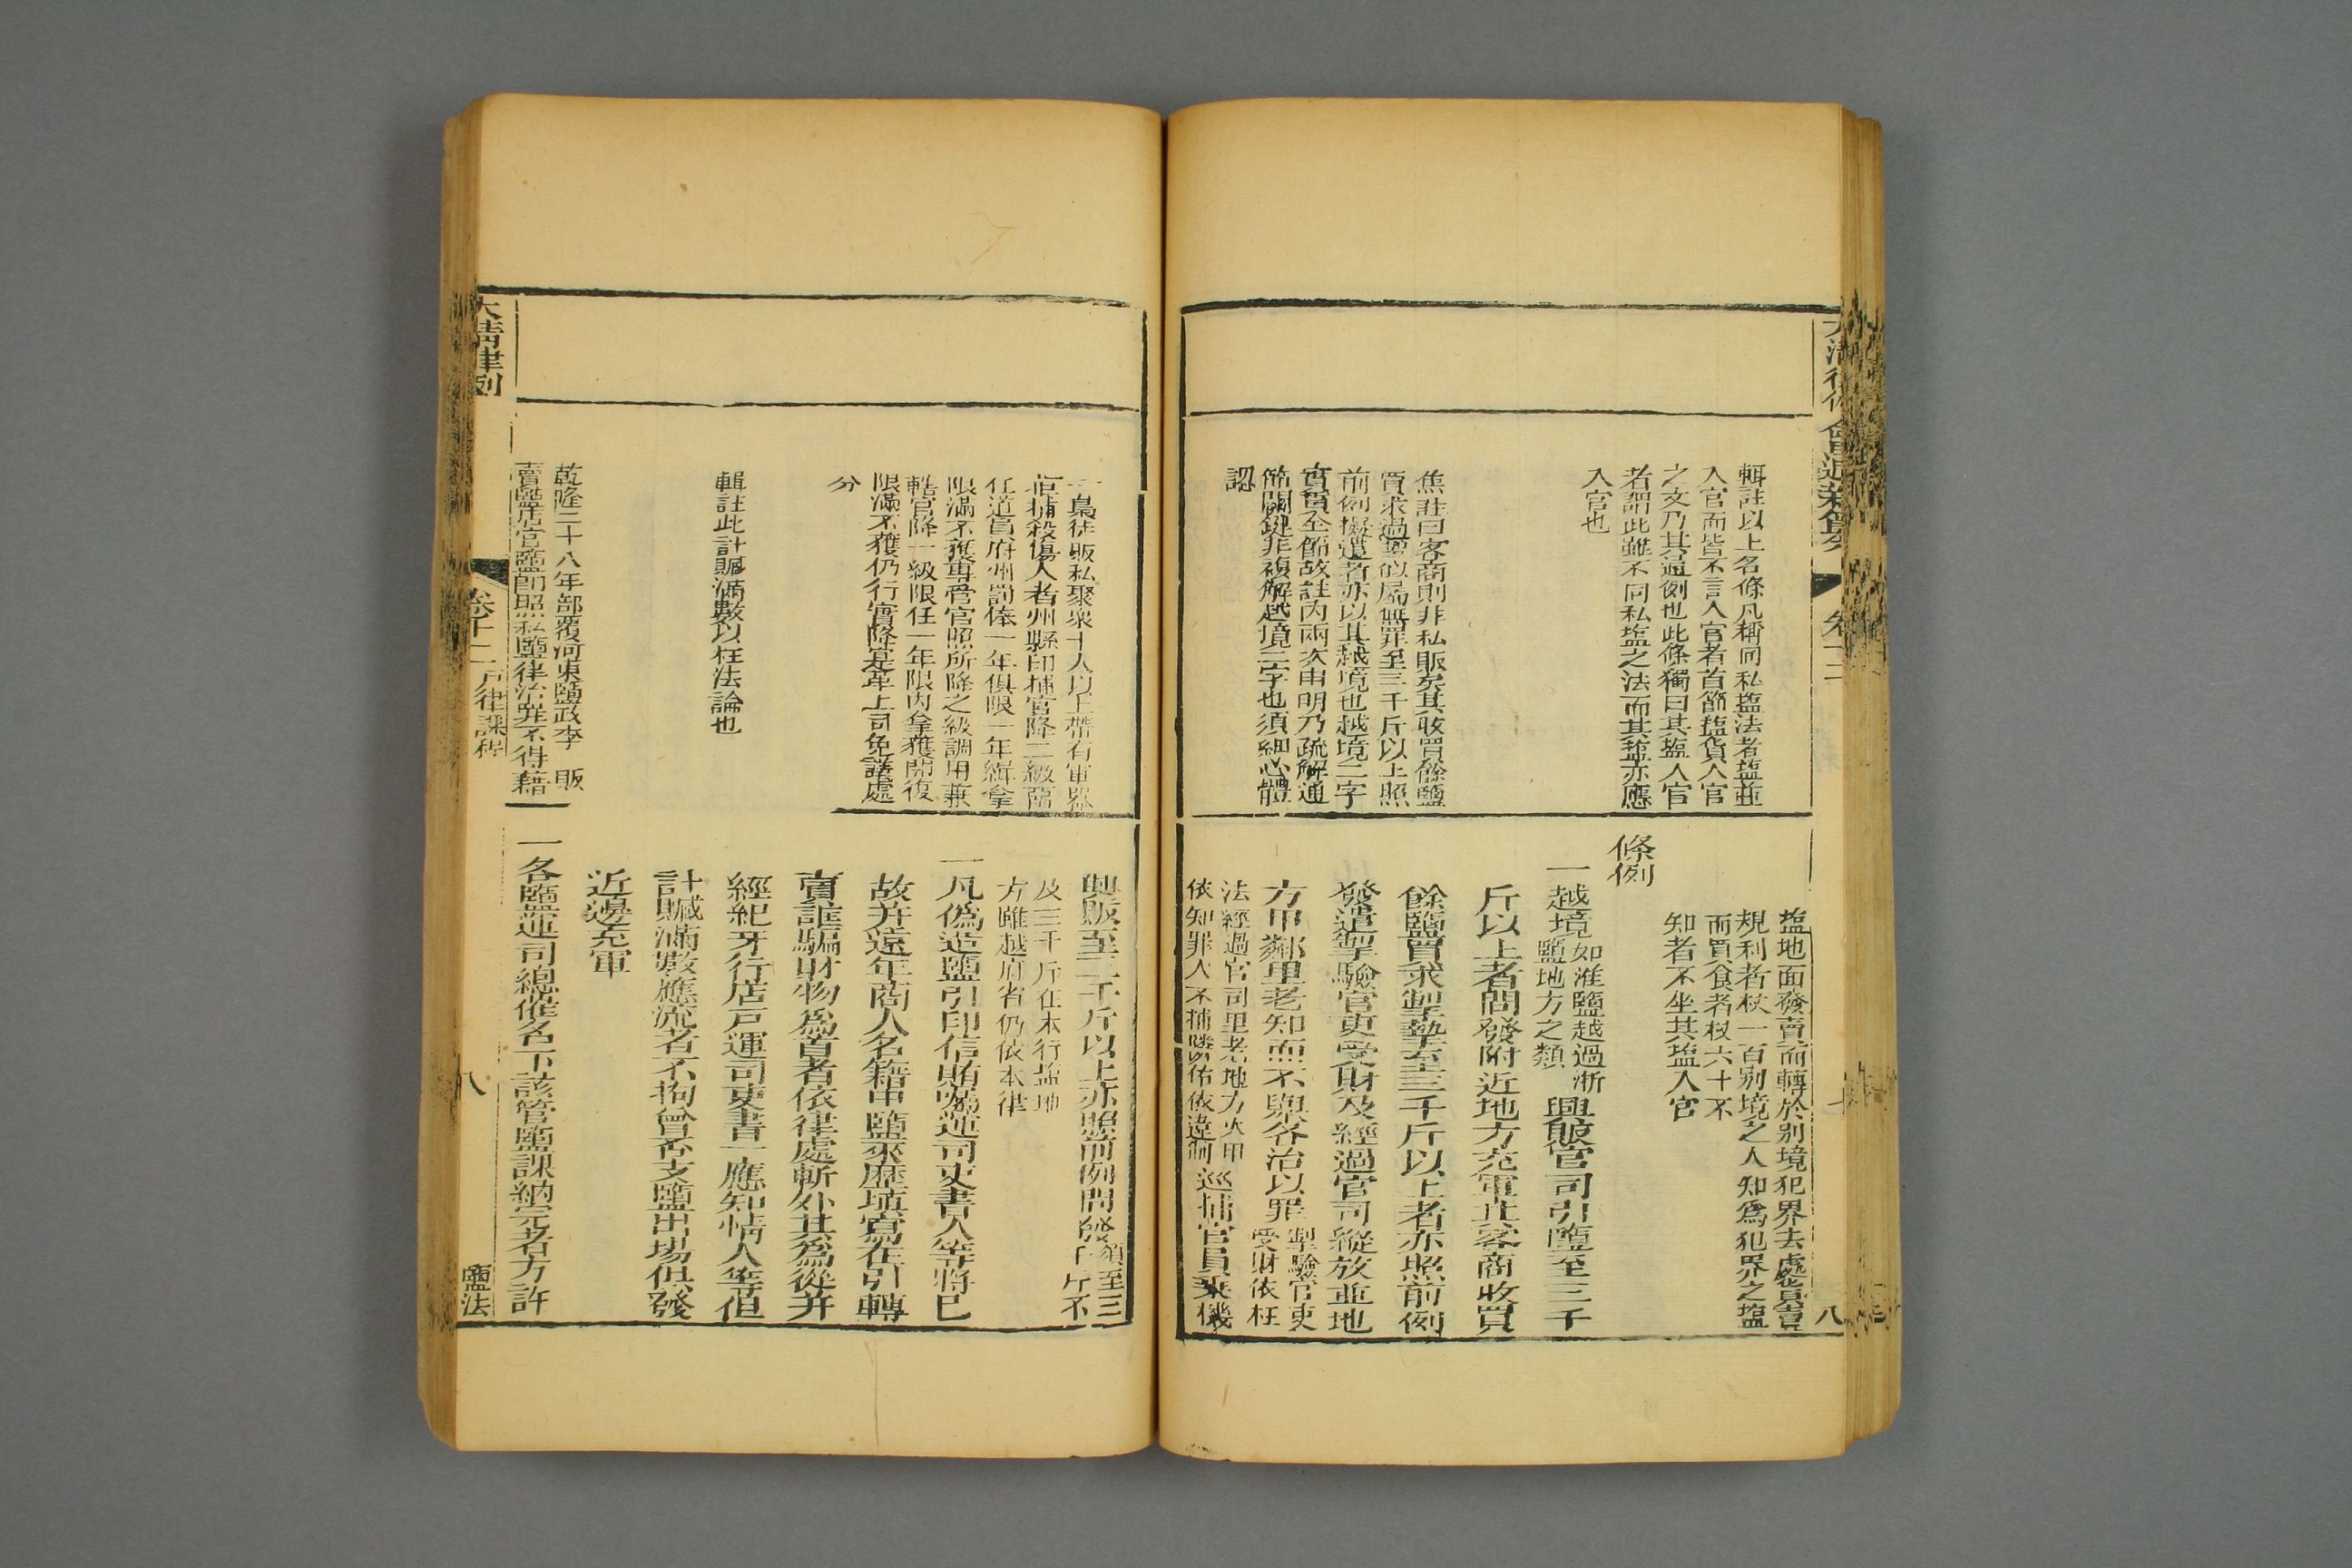 輯註以上名條凡稱同私塩法者塩並
入官而皆不言入官者首節塩貨入官
之文乃其通例也此條獨曰其塩入官
者謂此雖不同私塩之法而其塩亦應
入官也
焦註曰客商則非私販矣其收買餘鹽
買求過掣似屬無罪至三千斤以上照
前例擬遣者亦以其越境也越境二字
實貫全節故註內兩次申明乃疏解通
節關鍵非複解越境二字也須細心體
認
塩地面發賣而轉於别境犯界去處貨賣
規利者杖一百别境之人知為犯界之塩
而買食者杖六十不
知者不坐其塩入官
條例
一越境如淮鹽越過浙
鹽地方之類興販官司引鹽至三千
斤以上者問發附近地方充軍其客商收買
餘鹽買求掣摯至三千斤以上者亦照前例
發遣掣驗官吏受財及經過官司縱放並地
方甲鄰里老知而不舉各治以罪掣驗官吏
受財依枉
法經過官司里老地方火甲
依知罪人不捕鄰佑依違制巡捕官員乘機
一梟徒販私聚衆十人以上帶有軍器
拒捕殺傷人者州縣印捕官降二級留
任道員府州罰俸一年俱限一年緝拿
限滿不獲專管官照所降之級調用兼
轄官降一級限任一年限內拿獲開復
限滿不獲仍行實降定年上司免議處
分
輯註此計贓滿數以枉法論也
乾隆二十八年部覆河東鹽政李 販
賣鹽店官鹽卽照私鹽律治罪不得藉
興販至二千斤以上亦照前例問發須至三
千斤不
及三千斤在本行鹽地
方雖越府省仍依本律
一凡偽造鹽引印信賄囑運司吏書人等將已
故并遠年商人名籍中鹽來歷填寫在引轉
賣誆騙財物為首者依律處斬外其為從并
經紀牙行店戶運司吏書一應知情人等但
計贓滿數應流者不拘曾否支鹽出場俱發
近邊充軍
一各鹽運司總催名下該管鹽課納完者方許
大清律例
卷十二
戶律課程
八
鹽法